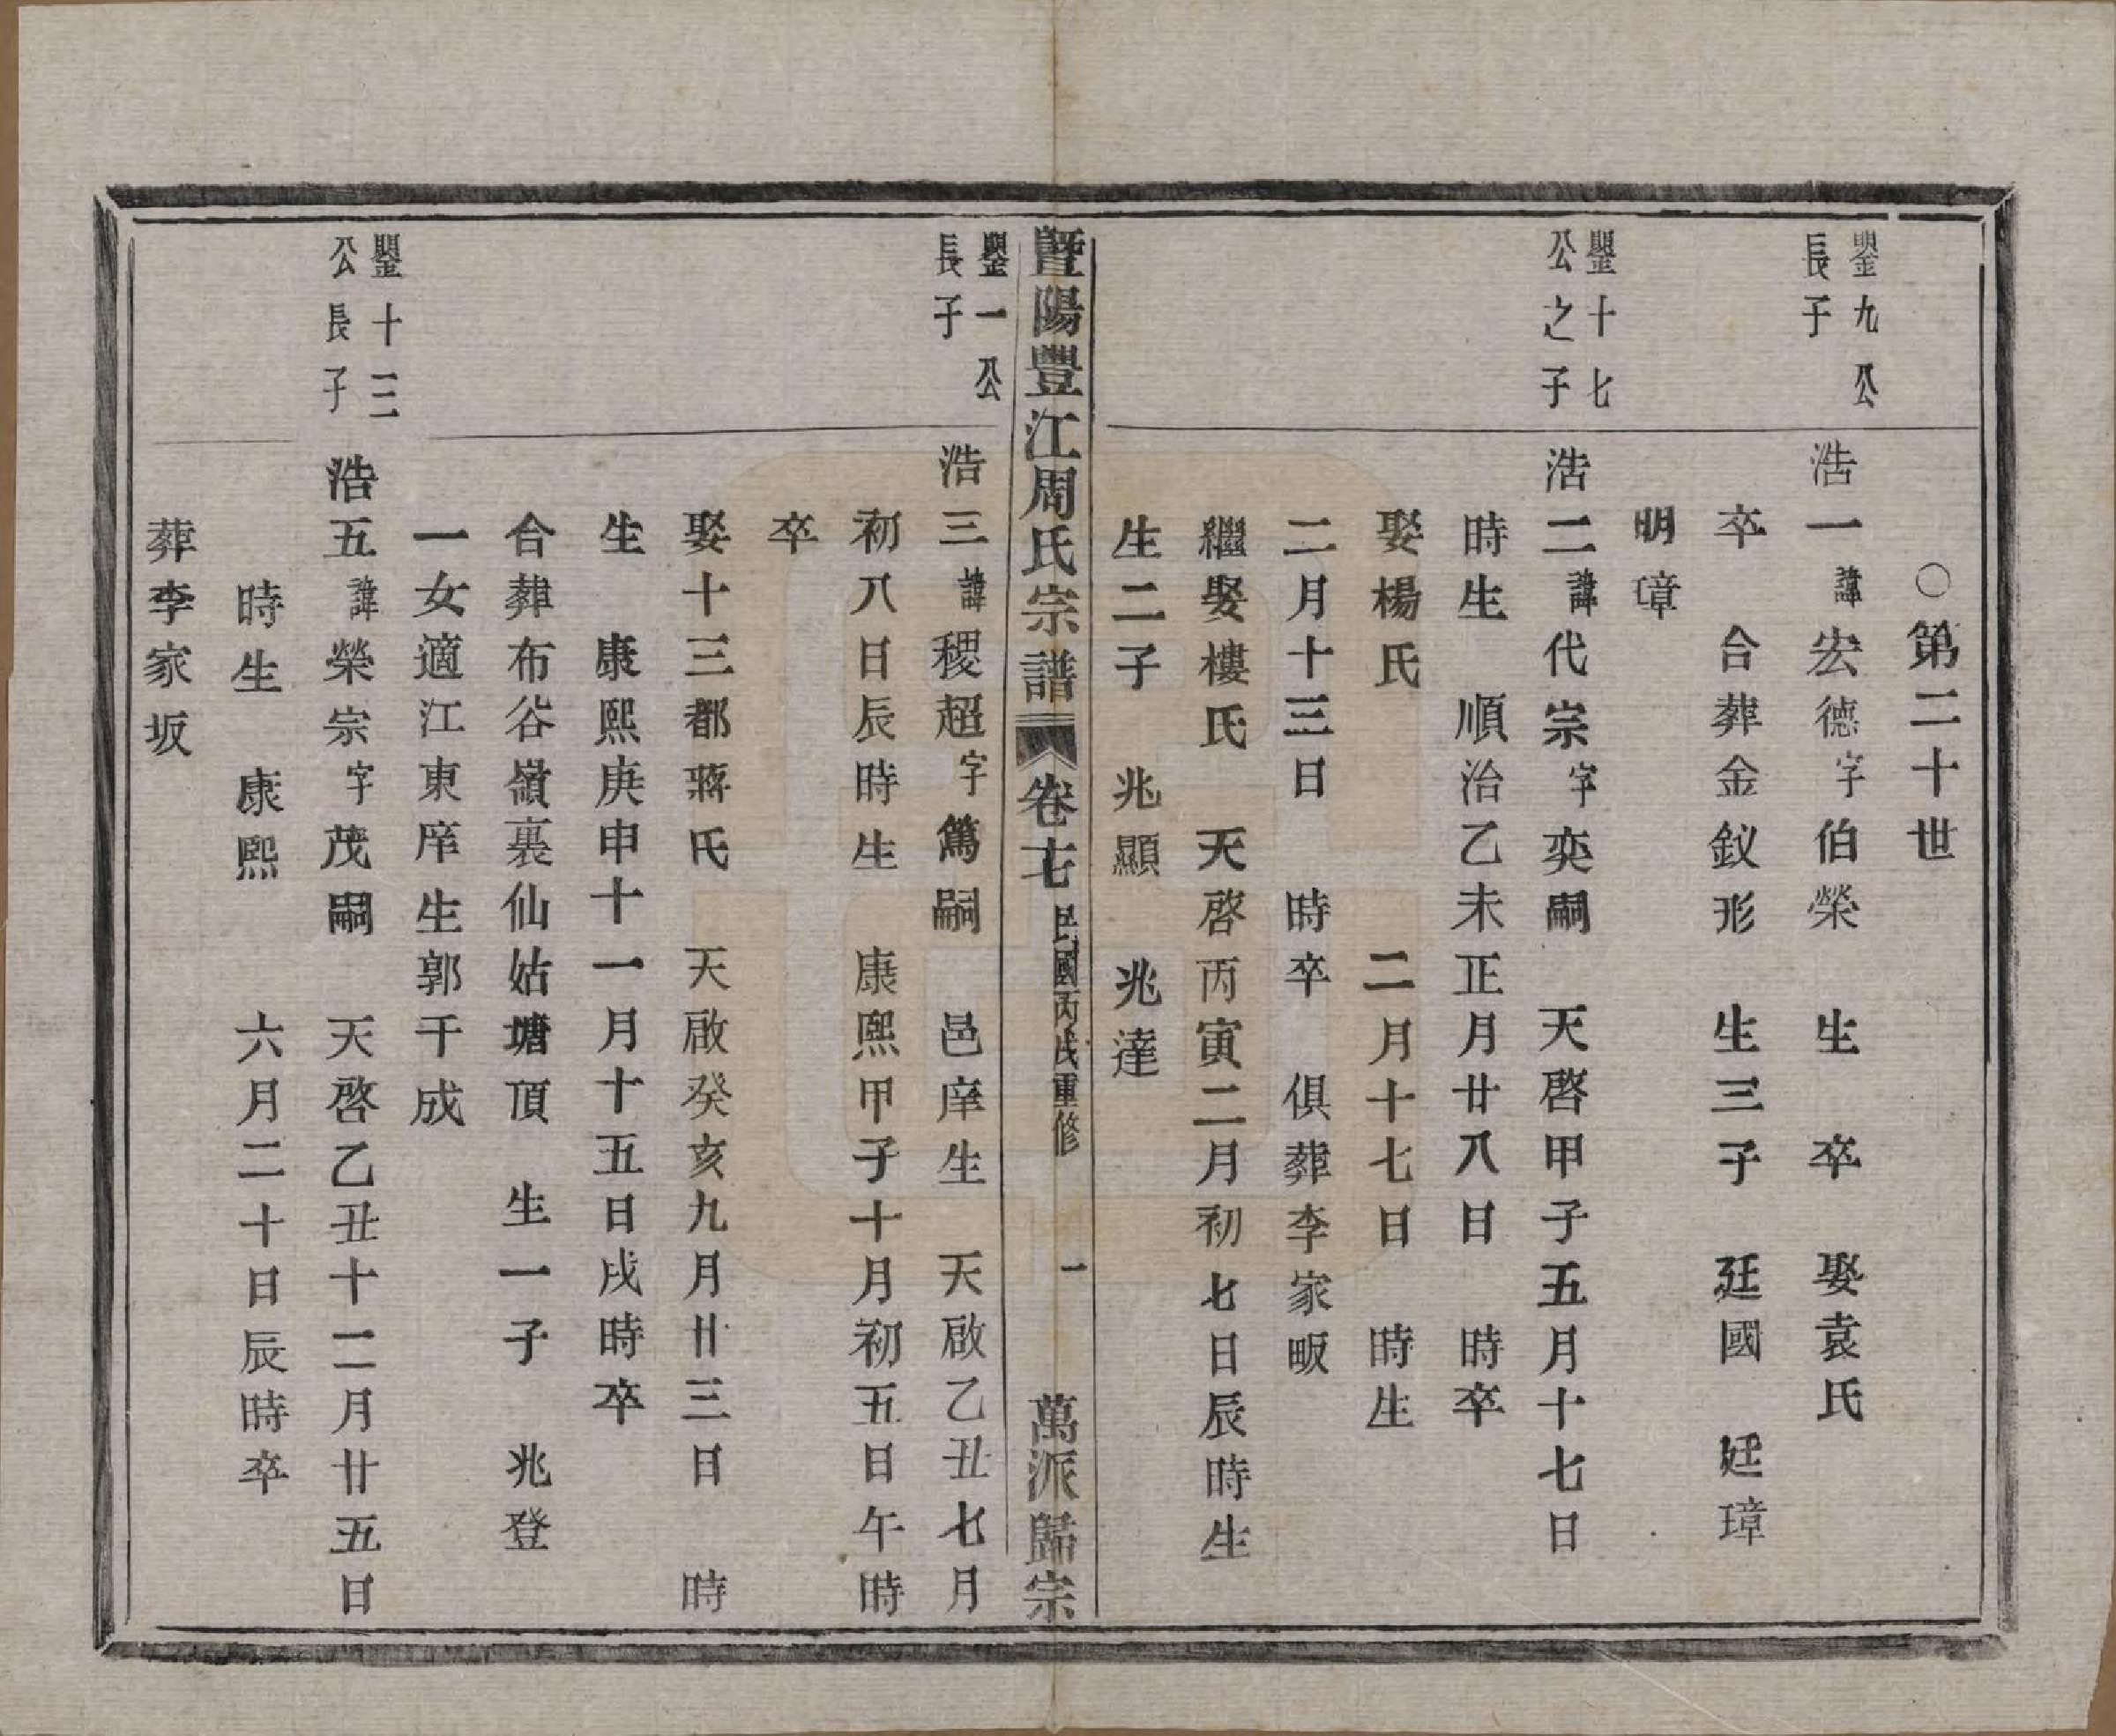 ○第二十世
鑍九公
長子
浩一諱宏德字伯榮　生　卒　娶袁氏
卒　合葬金釵形　生三子　廷國　廷璋
明璋
鑍十七
公之子
浩二諱代宗字奕嗣　天啓甲子五月十七日
時生　順治乙未正月廿八日　時卒
娶楊氏　二月十七日　時生
二月十三日　時卒　俱葬李家畈
繼娶樓氏　天啓丙寅二月初七日辰時生
生二子　兆顯　兆達
暨陽豐江周氏宗譜　卷七　民國丙戌重修　一　萬派歸宗
鑍一公
長子
浩三諱稷超字篤嗣　邑庠生　天啟乙丑七月
初八日辰時生　康熙甲子十月初五日午時
卒
娶十三都蔣氏　天啟癸亥九月廿三日　時
生　康熙庚申十一月十五日戌時卒
合葬布谷嶺裏仙姑塘頂　生一子　兆登
一女適江東庠生郭千成
鑍十三
公長子
浩五諱榮宗字茂嗣　天啓乙丑十二月廿五日
時生　康熙　六月二十日辰時卒
葬李家坂